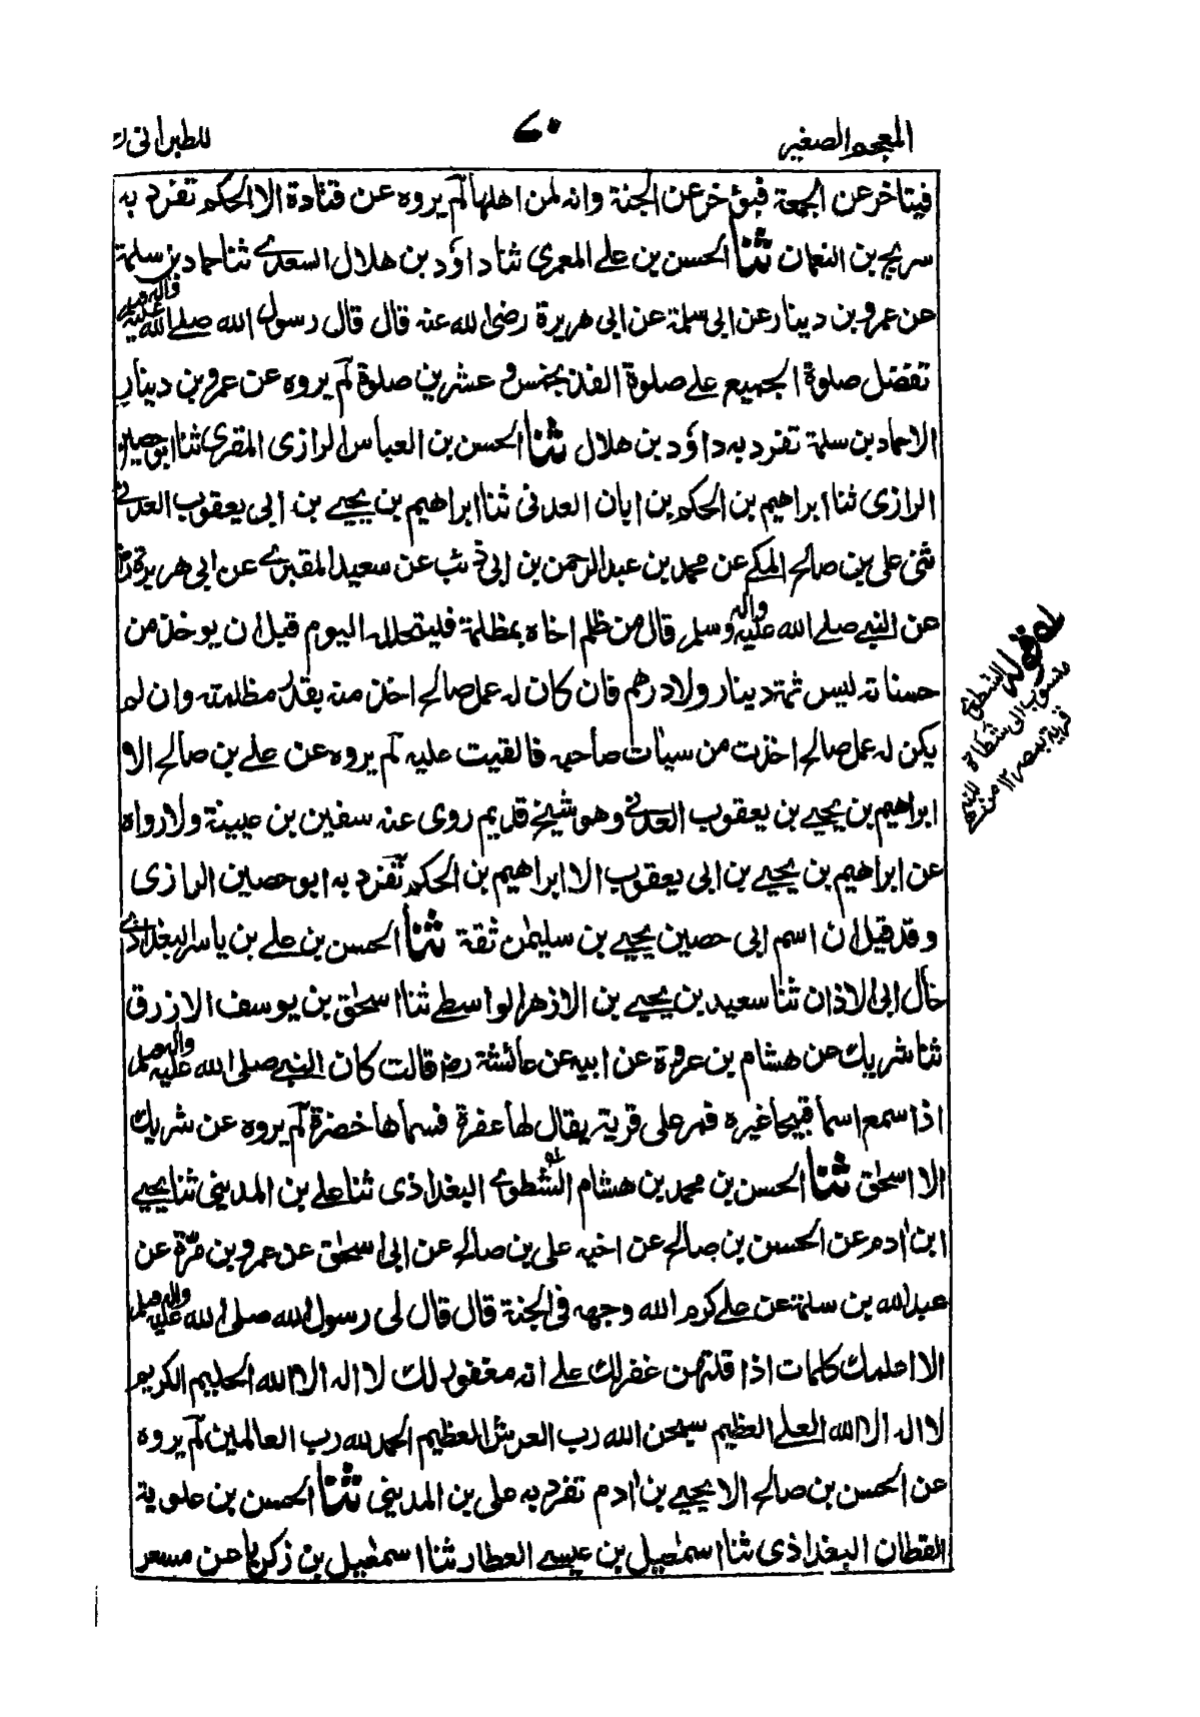 المعجم الصغير
٧٠
للطبرانى
فيتاخر عن الجمعة فيؤخر عن الجنة وانه لمن اهلها لم يروه عن قتادة الا الحكم تفرد به
سريج بن النعمان ثنا الحسن بن على المعمرى ثنا داؤد بن هلال السعدى ثنا حماد بن سلمة
عن عمرو بن دينار عن ابى سلمة عن ابى هريرة رضى الله عنه قال قال رسول الله صلى الله عليه واله وسلم
تفضل صلوة الجميع على صلوة الفذ بخمس و عشرين صلوة لم يروه عن عمرو بن دينار
الا حماد بن سلمة تفرد به داؤد بن هلال ثنا الحسن بن العباس الرازى المقرى ثنا ابو حصين
الرازى ثنا ابراهيم بن الحكم بن ابان العدنى ثنا ابراهيم بن يحيى بن ابى يعقوب العدنى
ثنى على بن صالح المكى عن محمد بن عبد الرحمن بن ابى ذئب عن سعيد المقبرى عن ابى هريرة رض
عن النبى صلى الله عليه واله وسلم قال من ظلم اخاه بمظلمة فليتحلله اليوم قبل ان يوخذ من
حسناته ليس ثمة دينار ولا درهم فان كان له عمل صالح اخذ منه بقدر مظلمته وان لم
يكن له عمل صالح اخذت من سيات صاحبه فالقيت عليه لم يروه عن على بن صالح الا
ابراهيم بن يحيى بن يعقوب العدنى وهو شيخ قديم روى عنه سفين بن عيينة ولا رواه
عن ابراهيم بن يحيى بن ابى يعقوب الا ابراهيم بن الحكم تفرد به ابو حصين الرازى
وقد قيل ان اسم ابى حصين يحيى بن سليمٰن ثقة ثنا الحسن بن على بن ياسر البغدادى
خال ابى الاذان ثنا سعيد بن يحيى بن الازهر الواسطى ثنا اسحٰق بن يوسف الازرق
ثنا شريك عن هشام بن عروة عن ابيه عن عائشة رض قالت كان النبى صلى الله عليه واله وسلم
اذا سمع اسما قبيحا غيره فمر على قرية يقال لها عفرة فسماها خضرة لم يروه عن شريك
الا اسحٰق ثنا الحسن بن محمد بن هشام الشطوى له البغداذى ثنا على بن المدينى ثنا يحيى
ابن اٰدم عن الحسن بن صالح عن اخيه على بن صالح عن ابى اسحٰق عن عمرو بن مرّة عن
عبد الله بن سلمة عن على كرم الله وجهه فى الجنة قال قال لى رسول الله صلى الله عليه واله وسلم
الا اعلمك كلمات اذا قلتهن غفر لك على انه مغفور لك لا اله الا الله الحليم الكريم
لا اله الا الله العلى العظيم سبحٰن الله رب العرش العظيم الحمد لله رب العالمين لم يروه
عن الحسن بن صالح الا يحيى بن اٰدم تفرد به على بن المدينى ثنا الحسن بن علوية
القطان البغداذى ثنا اسمٰعيل بن عيسى العطار ثنا اسمٰعيل بن زكريا عن مسعر
له قوله الشطوى
منسوب الى شطاة
قرية بمصر ١٢ من